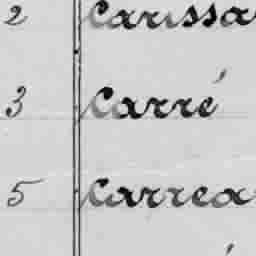 2 Carissa
3 Carré
5 Carrea